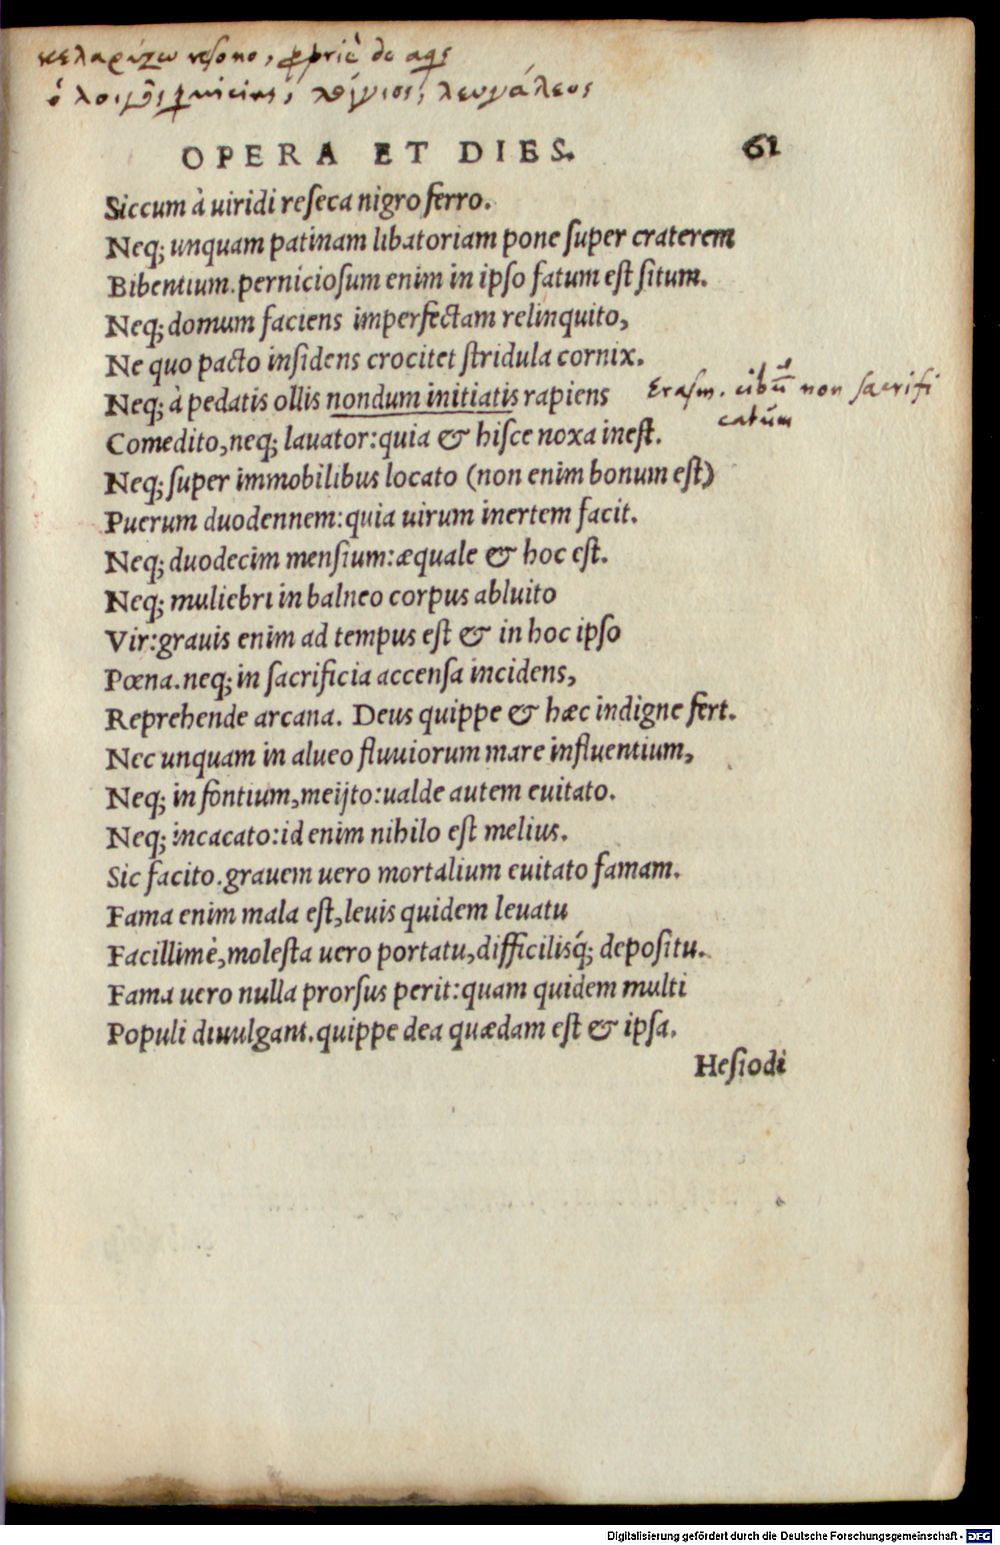 κελαρύζω resono, propriè de aqs
ὁ λοιγὸς λοίγιος, λευγάλεος
OPERA ET DIES. 61
Siccum à uiridi reseca nigro ferro.
Neq; unquam patinam libatoriam pone super craterem
Bibentium. perniciosum enim in ipso fatum est situm.
Neq; domum faciens imperfectam relinquito,
Ne quo pacto insidens crocitet stridula cornix.
Neq; à pedatis ollis nondum initiatis rapiens
Erasm. cibū non sacrifi
catum
Comedito, neq; lauator: quia & hisce noxa inest.
Neq; super immobilibus locato (non enim bonum est)
Puerum duodennem: quia uirum inertem facit.
Neq; duodecim mensium: æquale & hoc est.
Neq; muliebri in balneo corpus abluito
Vir: grauis enim ad tempus est & in hoc ipso
Pœna. neq; in sacrificia accensa incidens,
Reprehende arcana. Deus quippe & hæc indigne fert.
Nec unquam in alueo fluuiorum mare influentium,
Neq; in fontium, meijto: ualde autem euitato.
Neq; incacato: id enim nihilo est melius.
Sic facito. grauem uero mortalium euitato famam.
Fama enim mala est, leuis quidem leuatu
Facillimè, molesta uero portatu, difficilisq́; depositu.
Fama uero nulla prorsus perit: quam quidem multi
Populi diuulgant. quippe dea quædam est & ipsa.
Hesiodi
Digitalisierung gefördert durch die Deutsche Forschungsgemeinschaft - DFG